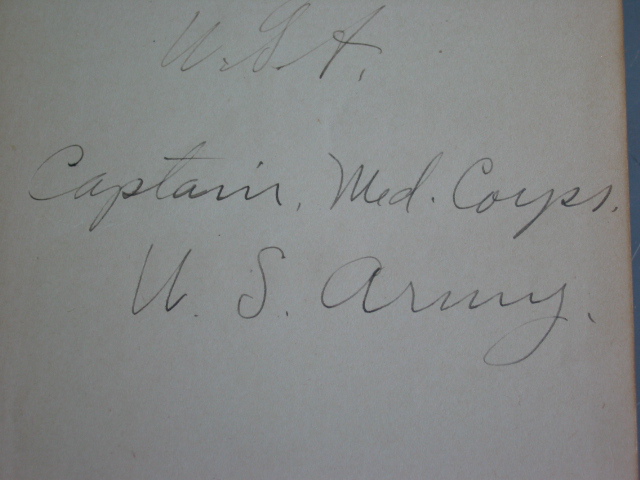 U.S.A.
Captain, Med. Corps.
U. S. Army.